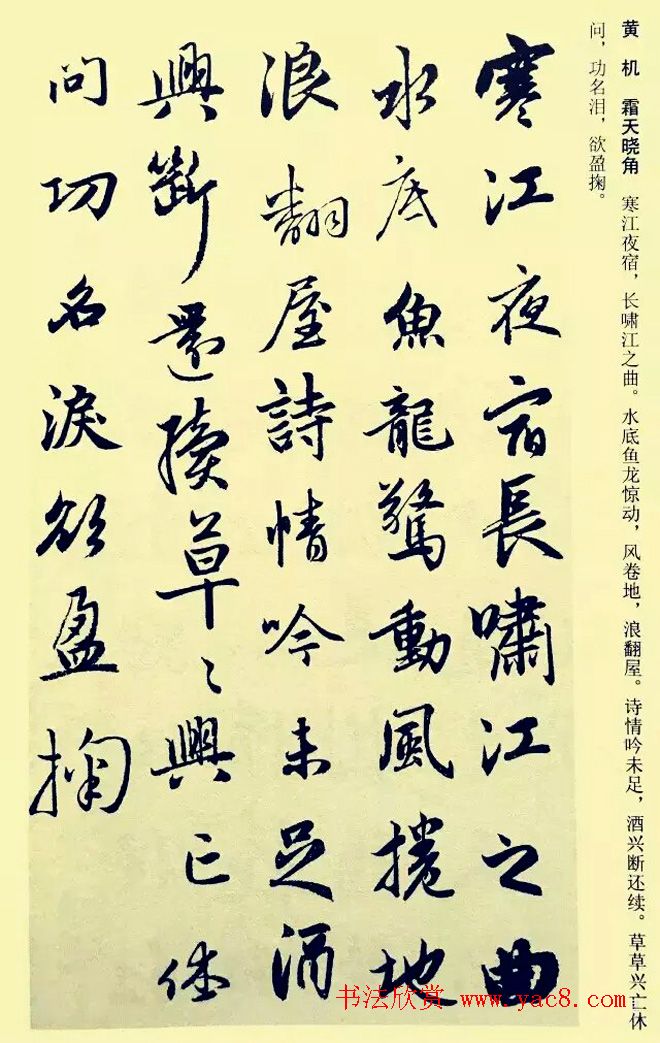 黄机 霜天晓角 寒江夜宿，长啸江之曲。水底鱼龙惊动，风卷地，浪翻屋。诗情吟未足，酒兴断还续。草草兴亡休
问，功名泪，欲盈掬。
寒江夜宿長嘯江之曲
水底魚龍驚動風捲地
浪翻屋詩情吟未足酒
興斷還續草〻興亡休
問功名淚欲盈掬
书法欣赏 www.yac8.com